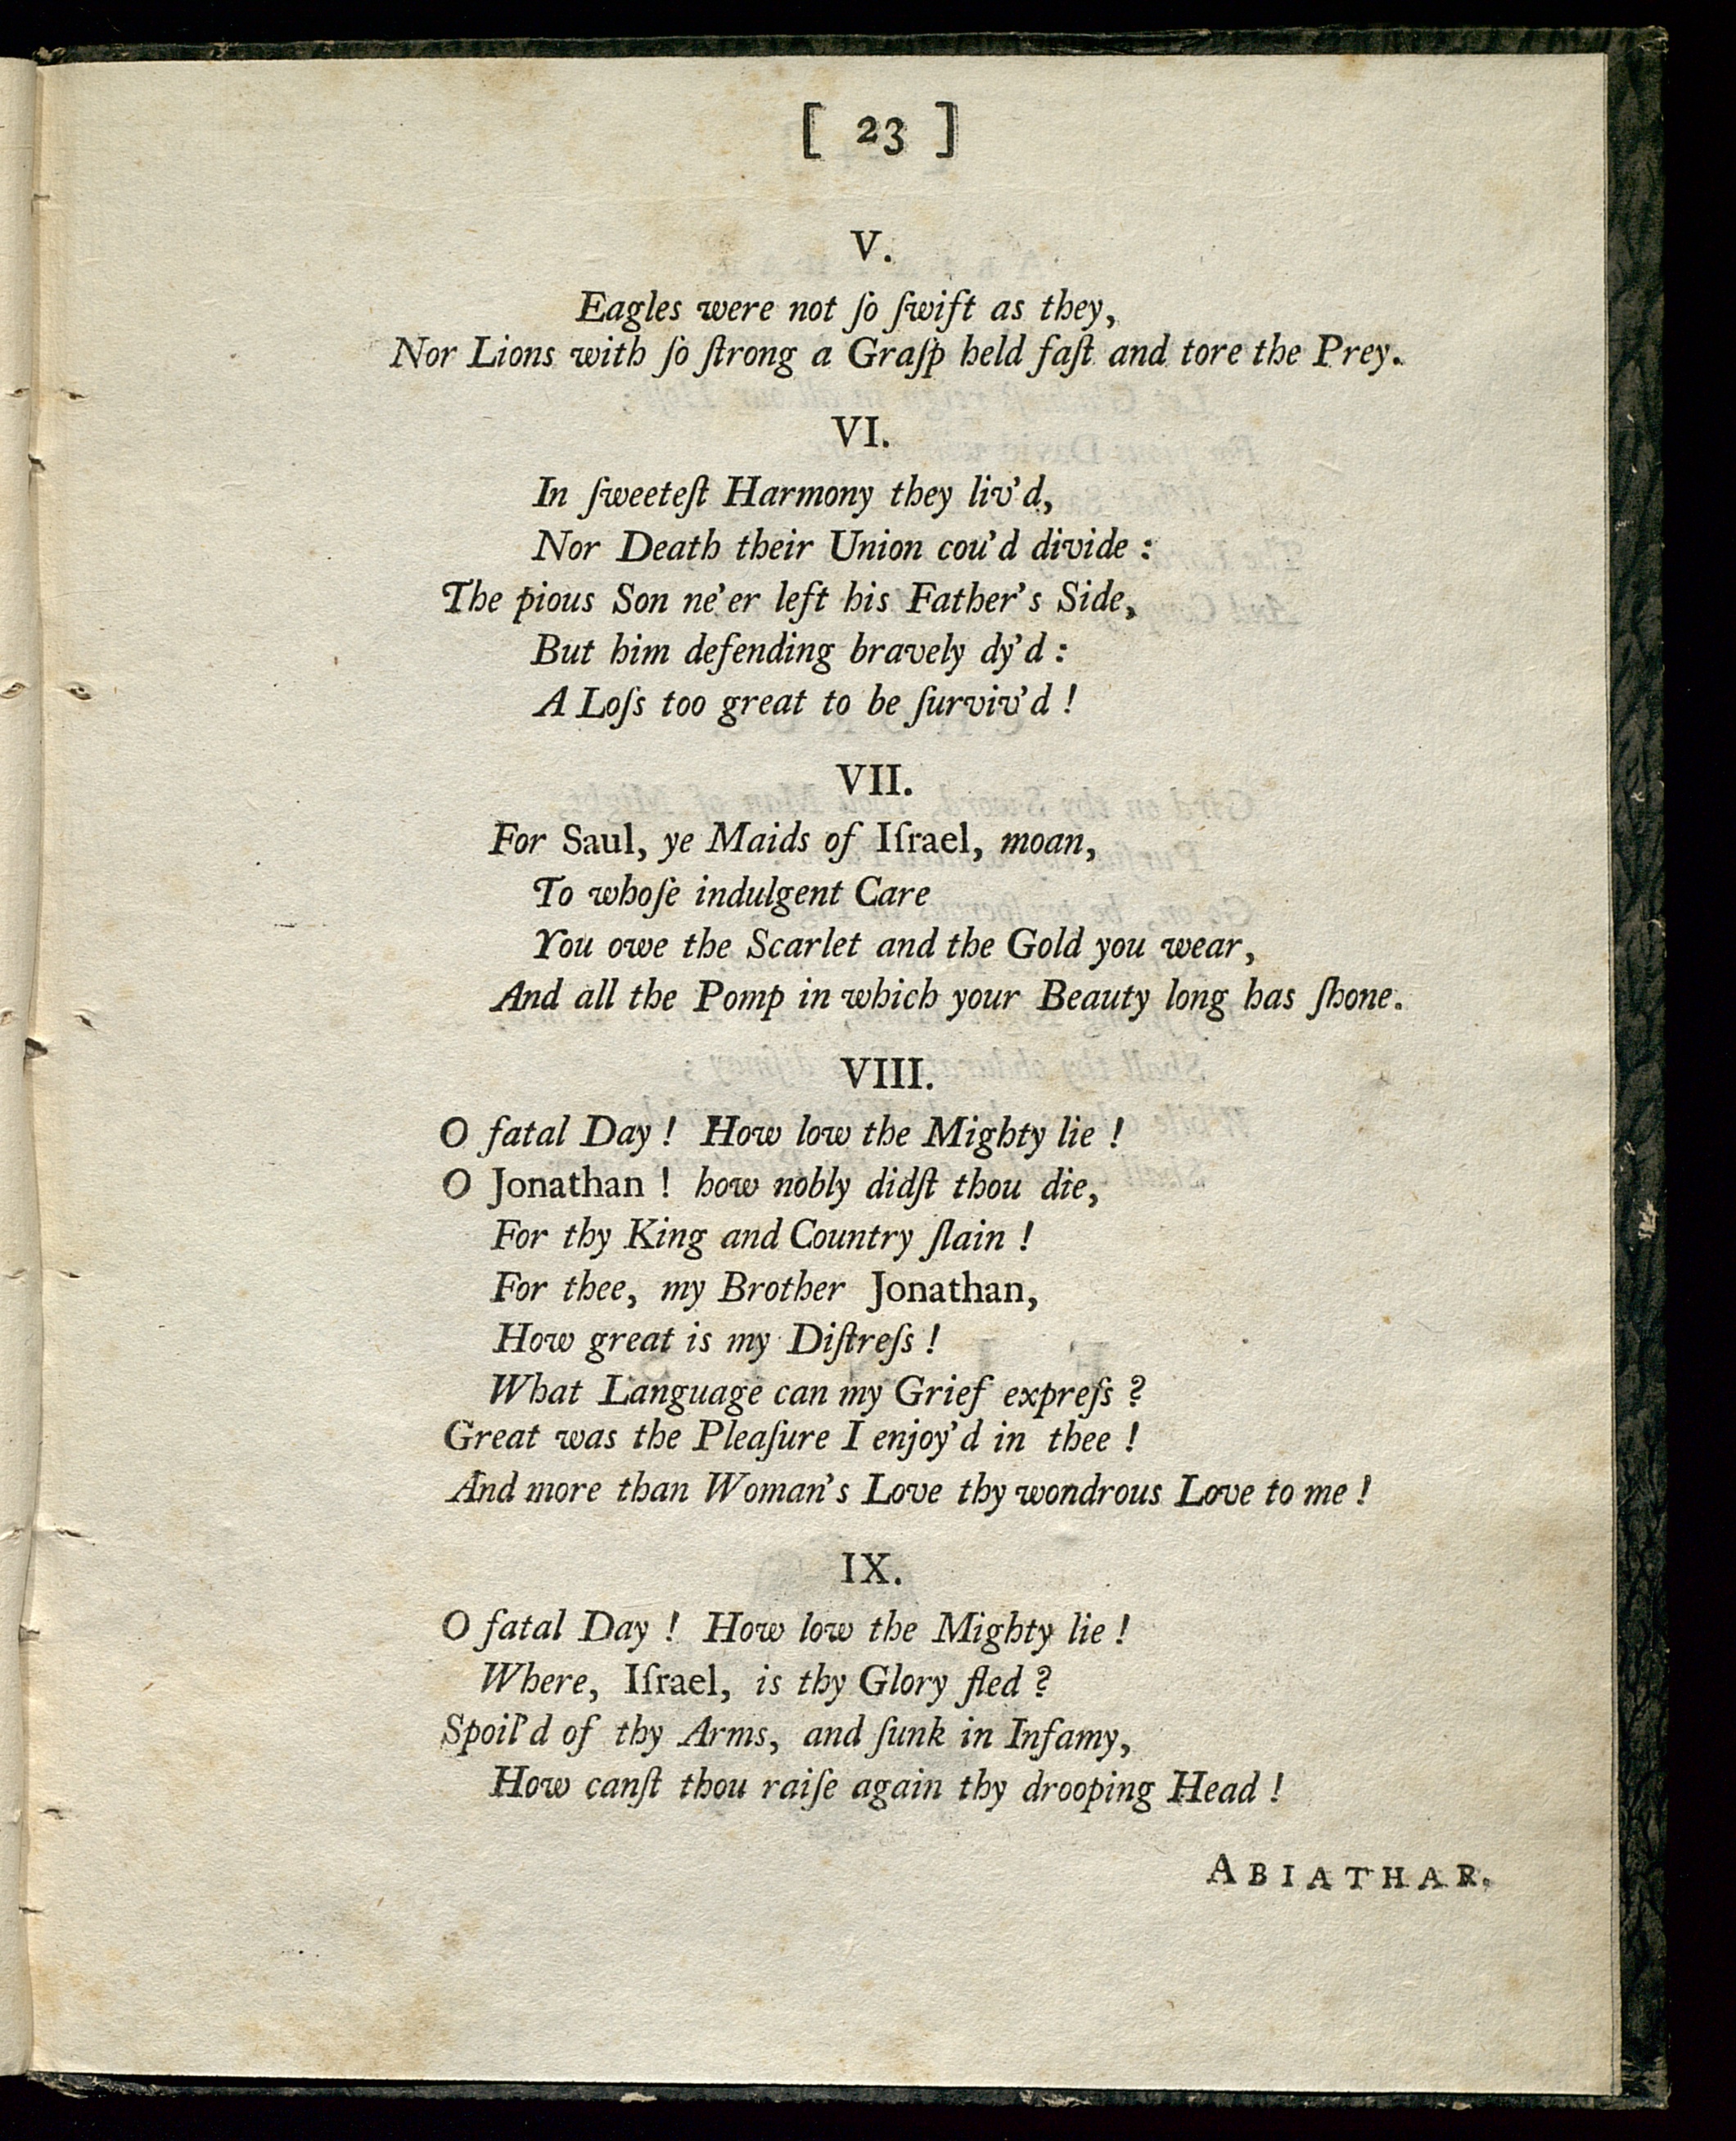 [ 23 ]
V.
Eagles were not ſo ſwift as they,
Nor Lions with ſo ſtrong a Graſp held faſt and tore the Prey.
VI.
In ſweeteſt Harmony they liv'd,
Nor Death their Union cou'd divide :
The pious Son ne'er left his Father's Side,
But him defending bravely dy'd :
A Loſs too great to be ſurviv'd !
VII.
For Saul, ye Maids of Iſrael, moan,
To whoſe indulgent Care
You owe the Scarlet and the Gold you wear,
And all the Pomp in which your Beauty long has ſhone.
VIII.
O fatal Day ! How low the Mighty lie !
O Jonathan ! how nobly didſt thou die,
For thy King and Country ſlain !
For thee, my Brother Jonathan,
How great is my Diſtreſs !
What Language can my Grief expreſs ?
Great was the Pleaſure I enjoy'd in thee !
And more than Woman's Love thy wondrous Love to me !
IX.
O fatal Day ! How low the Mighty lie !
Where, Iſrael, is thy Glory fled ?
Spoil'd of thy Arms, and ſunk in Infamy,
How canſt thou raiſe again thy drooping Head !
ABIATHAR.